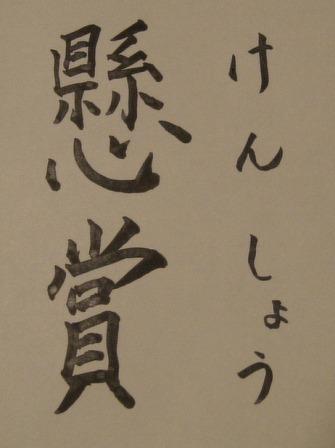 けんしょう
懸賞